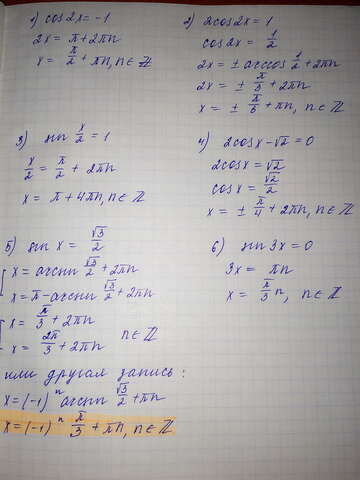 1) cos2x = -1
2x = π + 2πn
x = π/2 + πn, n∈ℤ
2) 2cos2x = 1
cos2x = 1/2
2x = ± arccos 1/2 + 2πn
2x = ± π/3 + 2πn
x = ± π/6 + πn, n∈ℤ
3) sin x/2 = 1
x/2 = π/2 + 2πn
x = π + 4πn, n∈ℤ
4) 2cosx - √2 = 0
2cosx = √2
cosx = √2/2
x = ± π/4 + 2πn, n∈ℤ
5) sin x = √3/2
x = arcsin √3/2 + 2πn
x = π - arcsin √3/2 + 2πn
x = π/3 + 2πn
x = 2π/3 + 2πn n∈ℤ
или другая запись:
x = (-1)^n arcsin √3/2 + πn
x = (-1)^n π/3 + πn, n∈ℤ
6) sin3x = 0
3x = πn
x = π/3 n, n∈ℤ